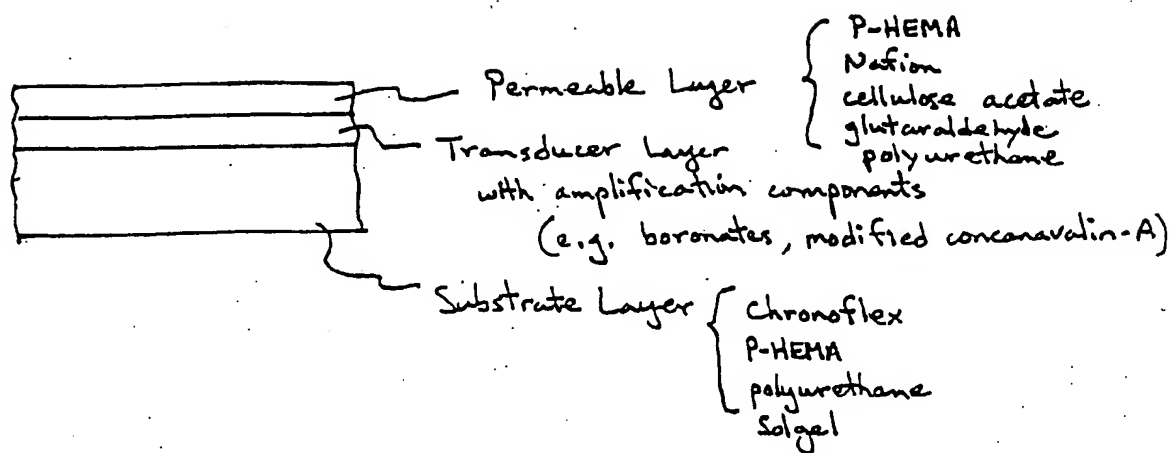 Permeable Layer
P-HEMA
Nafion
cellulose acetate
glutaraldehyde
polyurethane
Transducer Layer
with amplification components
(e.g. boronates, modified concanavalin-A)
Substrate Layer
Chronoflex
P-HEMA
polyurethane
Solgel